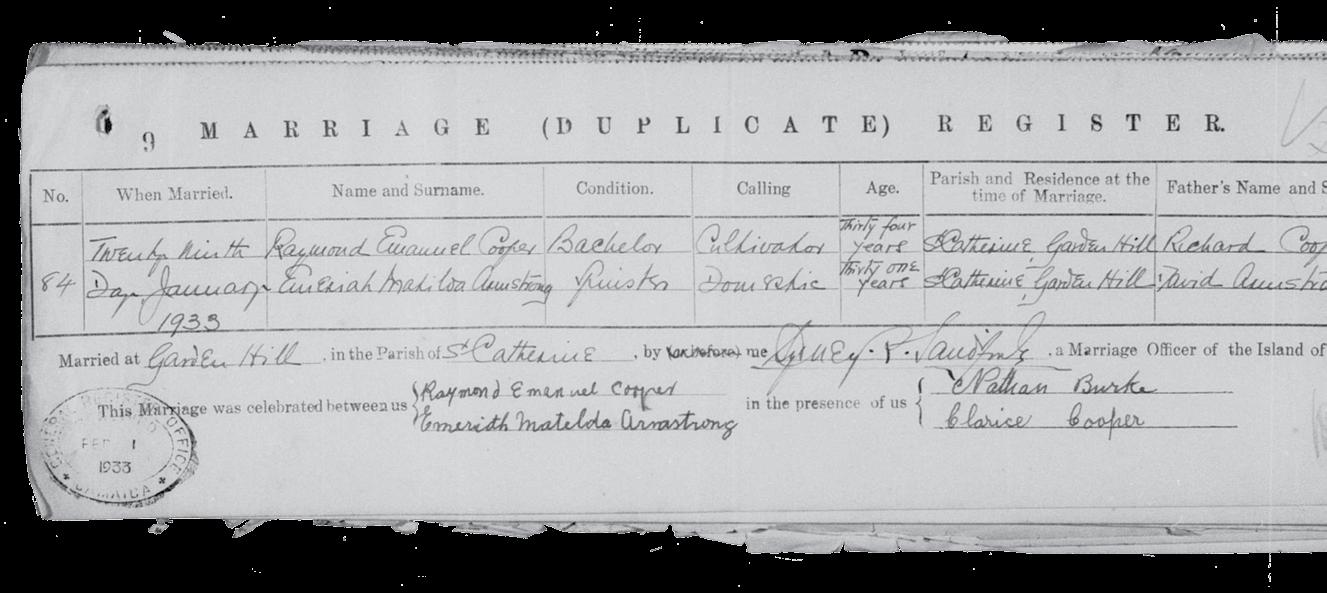 9 MARRIAGE (DUPLICATE) REGISTER.
No. When Married. Name and Surname. Condition. Calling Age. Parish and Residence at the time of Marriage. Father's Name and S
Twenty Ninth Raymond Emanuel Cooper Bachelor Cultivator Thirty four years St Catherine, Garden Hill Richard Coop
84 Day January Emeriah Matilda Armstrong Spinster Domestic Thirty one years St Catherine, Garden Hill David Armstro
1933
Married at Garden Hill, in the Parish of St Catherine, by (or before) me Sydney. P. , a Marriage Officer of the Island of
This Marriage was celebrated between us { Raymond Emanuel Cooper in the presence of us { Nathan Burke
Emeridth Matelda Armstrong Clarice Cooper
GENERAL REGISTER OFFICE
FEB 1
1933
JAMAICA